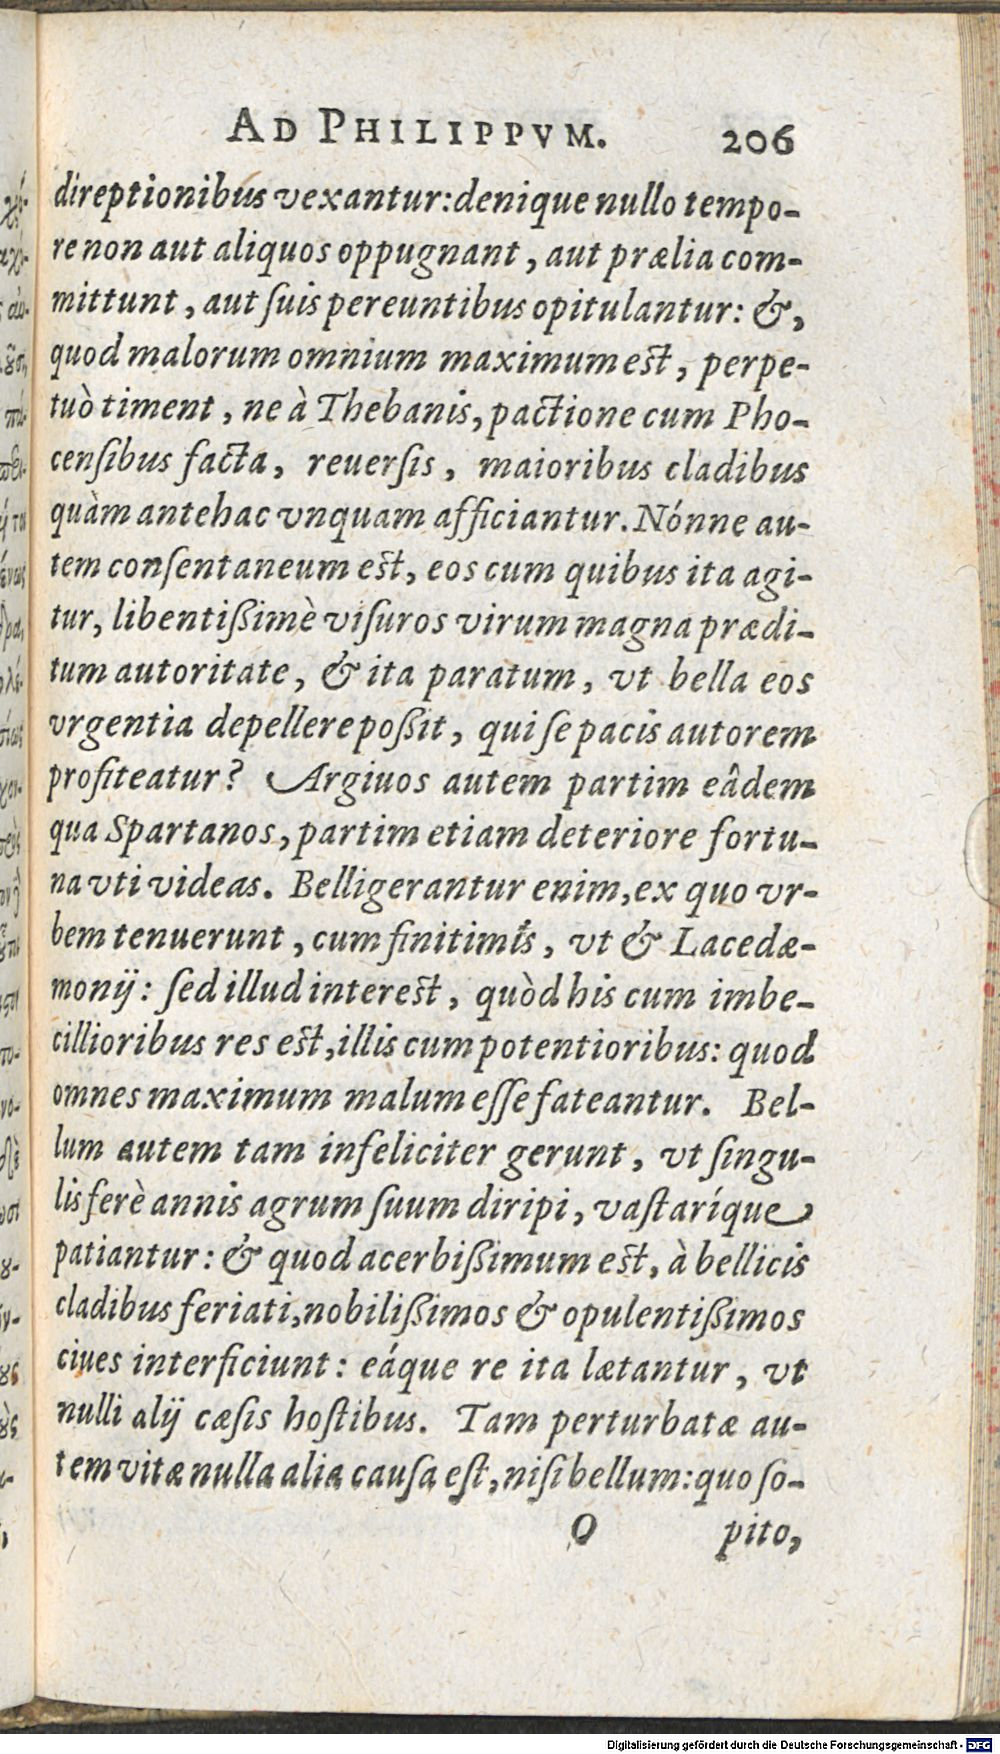 AD PHILIPPVM. 206
direptionibus vexantur: denique nullo tempo-
re non aut aliquos oppugnant, aut prælia com-
mittunt, aut ſuis pereuntibus opitulantur: &,
quod malorum omnium maximum eſt, perpe-
tuò timent, ne à Thebanis, pactione cum Pho-
cenſibus facta, reuerſis, maioribus cladibus
quàm antehac vnquam afficiantur. Nónne au-
tem conſentaneum eſt, eos cum quibus ita agi-
tur, libentißimè viſuros virum magna prædi-
tum autoritate, & ita paratum, vt bella eos
vrgentia depellere poßit, qui ſe pacis autorem
profiteatur? Argiuos autem partim eâdem
qua Spartanos, partim etiam deteriore fortu-
na vti videas. Belligerantur enim, ex quo vr-
bem tenuerunt, cum finitimis, vt & Lacedæ-
monij: ſed illud intereſt, quòd his cum imbe-
cillioribus res eſt, illis cum potentioribus: quod
omnes maximum malum eſſe fateantur. Bel-
lum autem tam infeliciter gerunt, vt ſingu-
lis ferè annis agrum ſuum diripi, vaſtaríque
patiantur: & quod acerbißimum eſt, à bellicis
cladibus feriati, nobilißimos & opulentißimos
ciues interficiunt: eáque re ita lætantur, vt
nulli alij cæſis hoſtibus. Tam perturbatæ au-
tem vitæ nulla alia cauſa eſt, niſi bellum: quo ſo-
O pito,
Digitalisierung gefördert durch die Deutsche Forschungsgemeinschaft - DFG